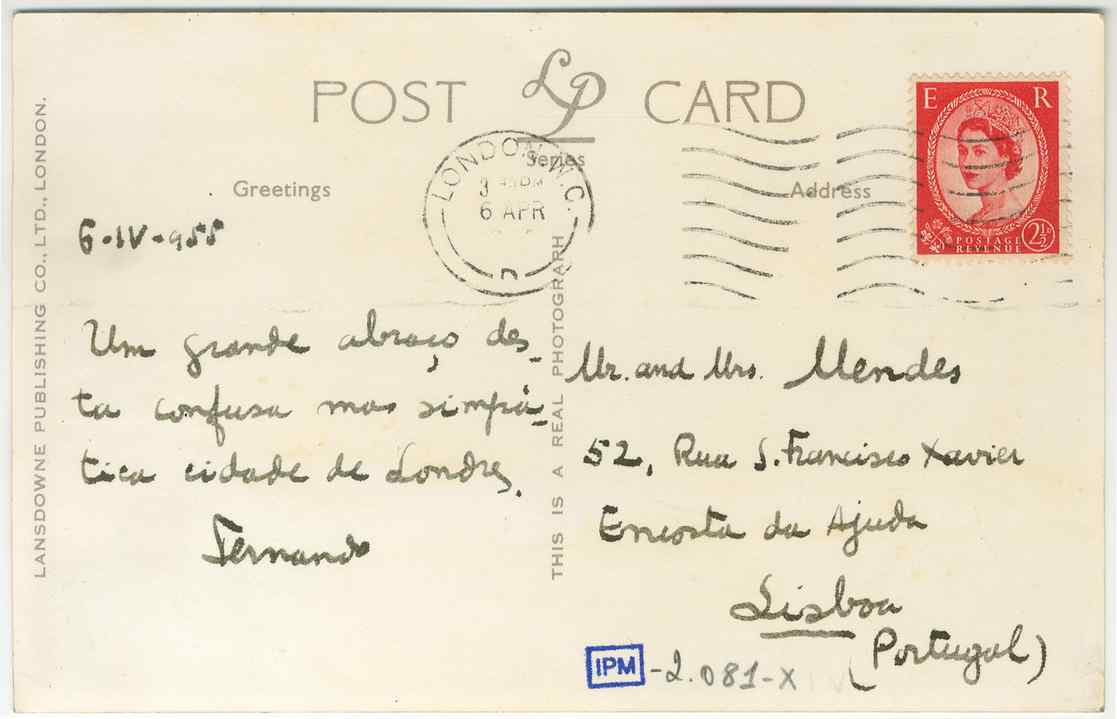 POST LP CARD
Series
Greetings
Address
LONDON. W.C.
3 45 PM
6 APR
E R
POSTAGE
REVENUE
2½
6-IV-955
Um grande abraço des-
ta confusa mas simpá-
tica cidade de Londres.
Fernando
Mr. and Mrs. Mendes
52, Rua S. Francisco Xavier
Encosta da Ajuda
Lisboa
(Portugal)
IPM -2.081-X
LANSDOWNE PUBLISHING CO., LTD., LONDON.
THIS IS A REAL PHOTOGRAPH